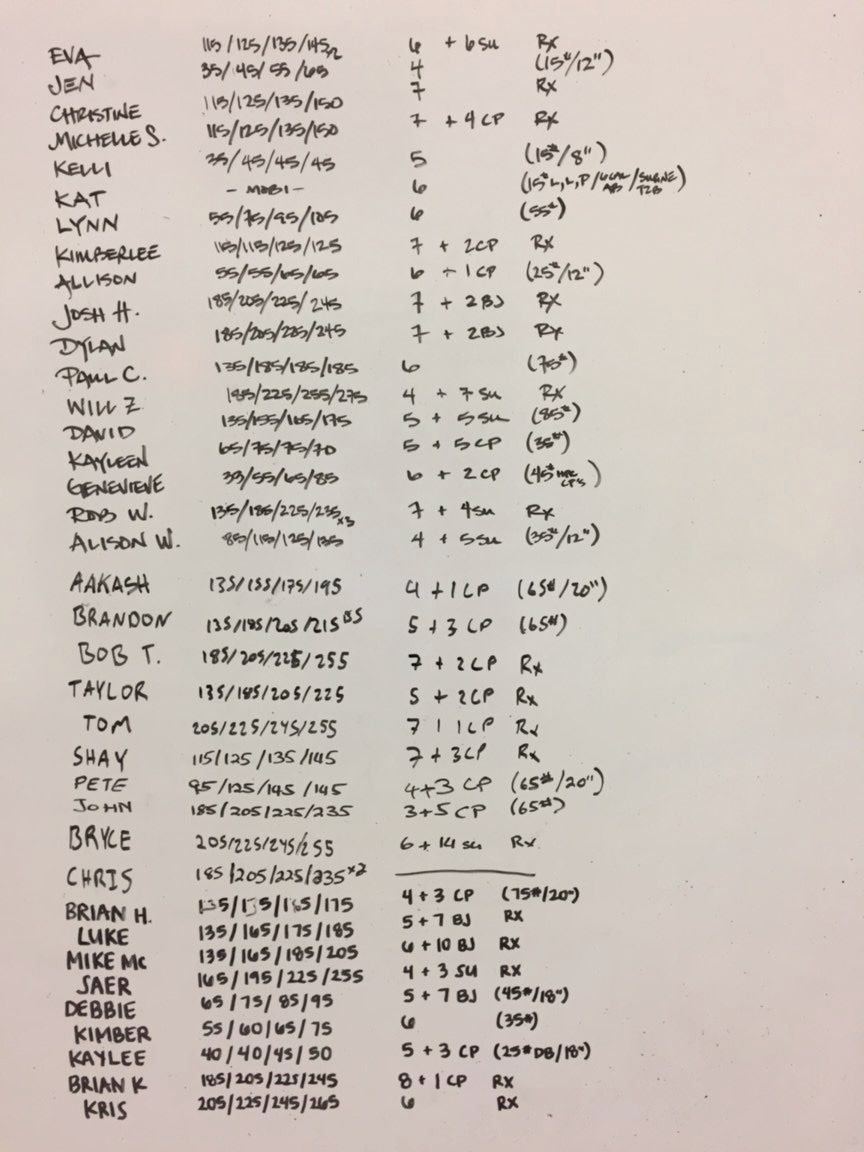 EVA 115/125/135/145 6 + 6 SU Rx
JEN 35/45/55/65 4 (15#/12")
CHRISTINE 115/125/135/150 7 Rx
MICHELLE S. 115/125/135/150 7 + 4 CP Rx
KELLI 35/45/45/45 5 (15#/8")
KAT - MOBI - 6
LYNN 55/75/95/105 6 (55#)
KIMBERLEE 115/115/125/125 7 + 2CP Rx
ALLISON 55/55/65/65 6 + 1 CP (25#/12")
JOSH H. 185/205/225/245 7 + 2BJ Rx
DYLAN 185/205/225/245 7 + 2BJ Rx
PAUL C. 135/185/185/185 6 (75#)
WILL Z 185/225/255/275 4 + 7 SU Rx
DAVID 135/155/165/175 5 + 5 SU (85#)
KAYLEEN 65/75/75/70 5 + 5 CP (35#)
GENEVIEVE /55/65/85 6 + 2 CP (45#
ROB W. 135/185/225/235 x3 7 + 4SU Rx
ALISON W. 85/115/125/135 4 + 5SU (35#/12")
AAKASH 135/155/175/195 4 + 1 CP (65#/20")
BRANDON 135/185/205/215 5 + 3 CP (65#)
BOB T. 185/205/225/255 7 + 2 CP Rx
TAYLOR 135/185/205/225 5 + 2CP Rx
TOM 205/225/245/255 7 + 1 CP Rx
SHAY 115/125/135/145 7 + 3CP Rx
PETE 95/125/145/145 4+3 CP (65#/20")
JOHN 185/205/225/235 3+5 CP (65#)
BRYCE 205/225/245/255 6 + 14 SU Rx
CHRIS 185/205/225/235 x2
BRIAN H. /175 4 + 3 CP (75#/20")
LUKE 135/165/175/185 5 + 7 BJ RX
MIKE MC 135/165/185/205 6 + 10 BJ RX
SAER 165/195/225/255 4 + 3 SU RX
DEBBIE 65/75/85/95 5 + 7 BJ (45#/18")
KIMBER 55/60/65/75 6 (35#)
KAYLEE 40/40/45/50 5 + 3 CP (25#DB/18")
BRIAN K 185/205/225/245 8 + 1 CP RX
KRIS 205/225/245/265 6 RX